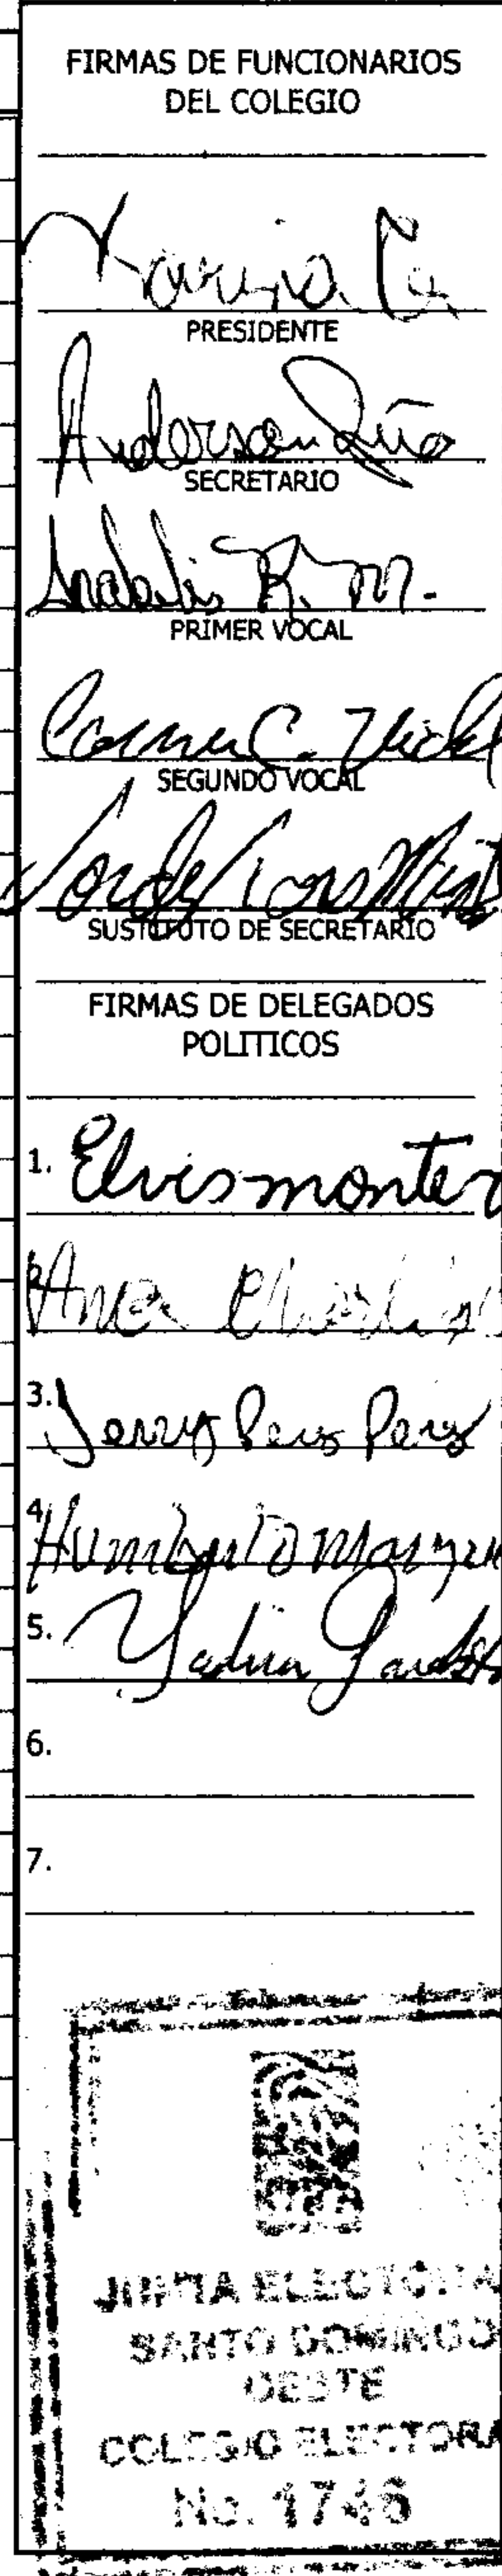 FIRMAS DE FUNCIONARIOS
DEL COLEGIO
PRESIDENTE
Anderson
SECRETARIO
R. M.
PRIMER VOCAL
C.
SEGUNDO VOCAL
SUSTITUTO DE SECRETARIO
FIRMAS DE DELEGADOS
POLITICOS
1. Elvis monter
2. Ana
3. Jerry Perez Perez
4. Humberto
5.
6.
7.
JUNTA ELECTORA
SANTO DOMINGO
OESTE
COLEGIO ELECTORA
No. 1746